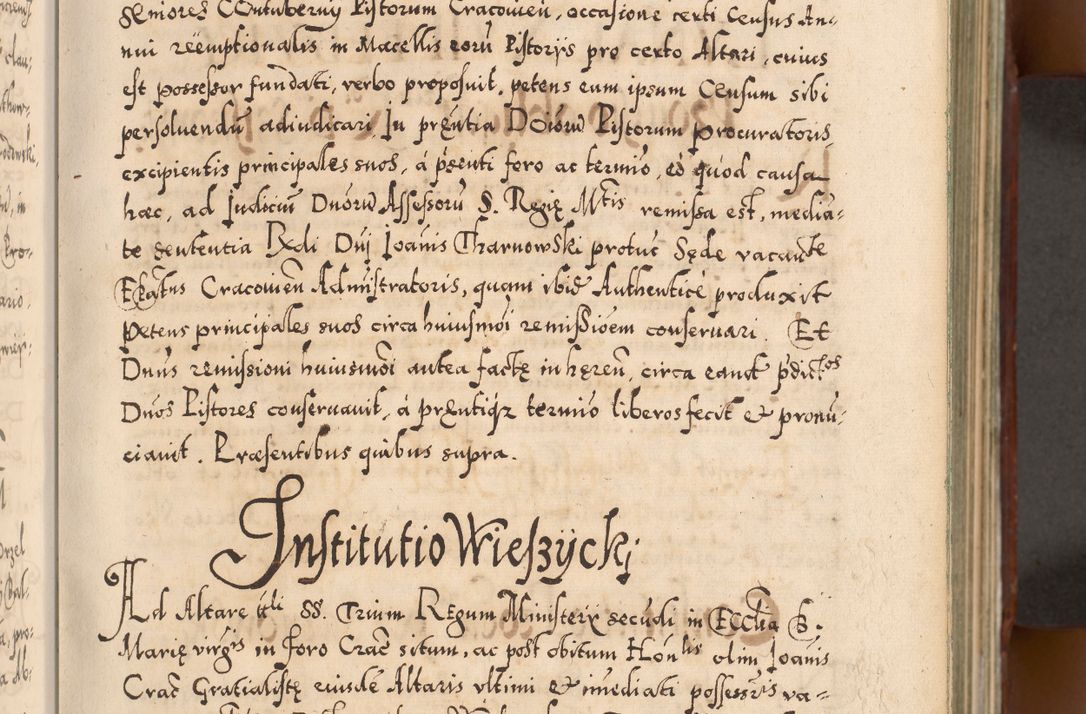 Seniores Contubernÿ Pistorum Cracovien, occasione certi Census An-
nui reëmptionalis in Macellis eorũ Pistorÿs pro certo Altari, cuius
est possessor fundati, verbo proposuit, petens eum ipsum Censum sibi
persoluendũ adiudicari. In prẽntia Dõiorũ Pistorum procuratoris,
excipientis principales suos, á pñsenti foro ac termĩo, eò quod causa
hæc, ad Judiciũ Dnõrũ Assessorũ S. Regię Mtis remissa est, media-
te sententia Rñdi Dñi Joãnis Tharnowski protũc Sęde vacante
Epãtus Cracovieñ Admĩstratoris, quam ibid Authenticè produxit
petens principales suos circa huiusmõi remissiõem conseruari. Et
Dnus remissioni huiusmõi antea factę inhęreñ, circa eand pdictos
Dños Pistores conseruauit, á prẽntiqz termĩo liberos fecit et pronũ-
ciauit. Præsentibus quibus supra.
Institutio Wieszÿckj
Ad Altare ttli SS. Trium Regum Ministerÿ secũdi in Ecclia B.
Marię virgis in foro Crac situm, ac post obitum Honlis olim Joanis
Crac Gratialistę eiusdẽ Altaris vltimi et imẽdiati possessris va-